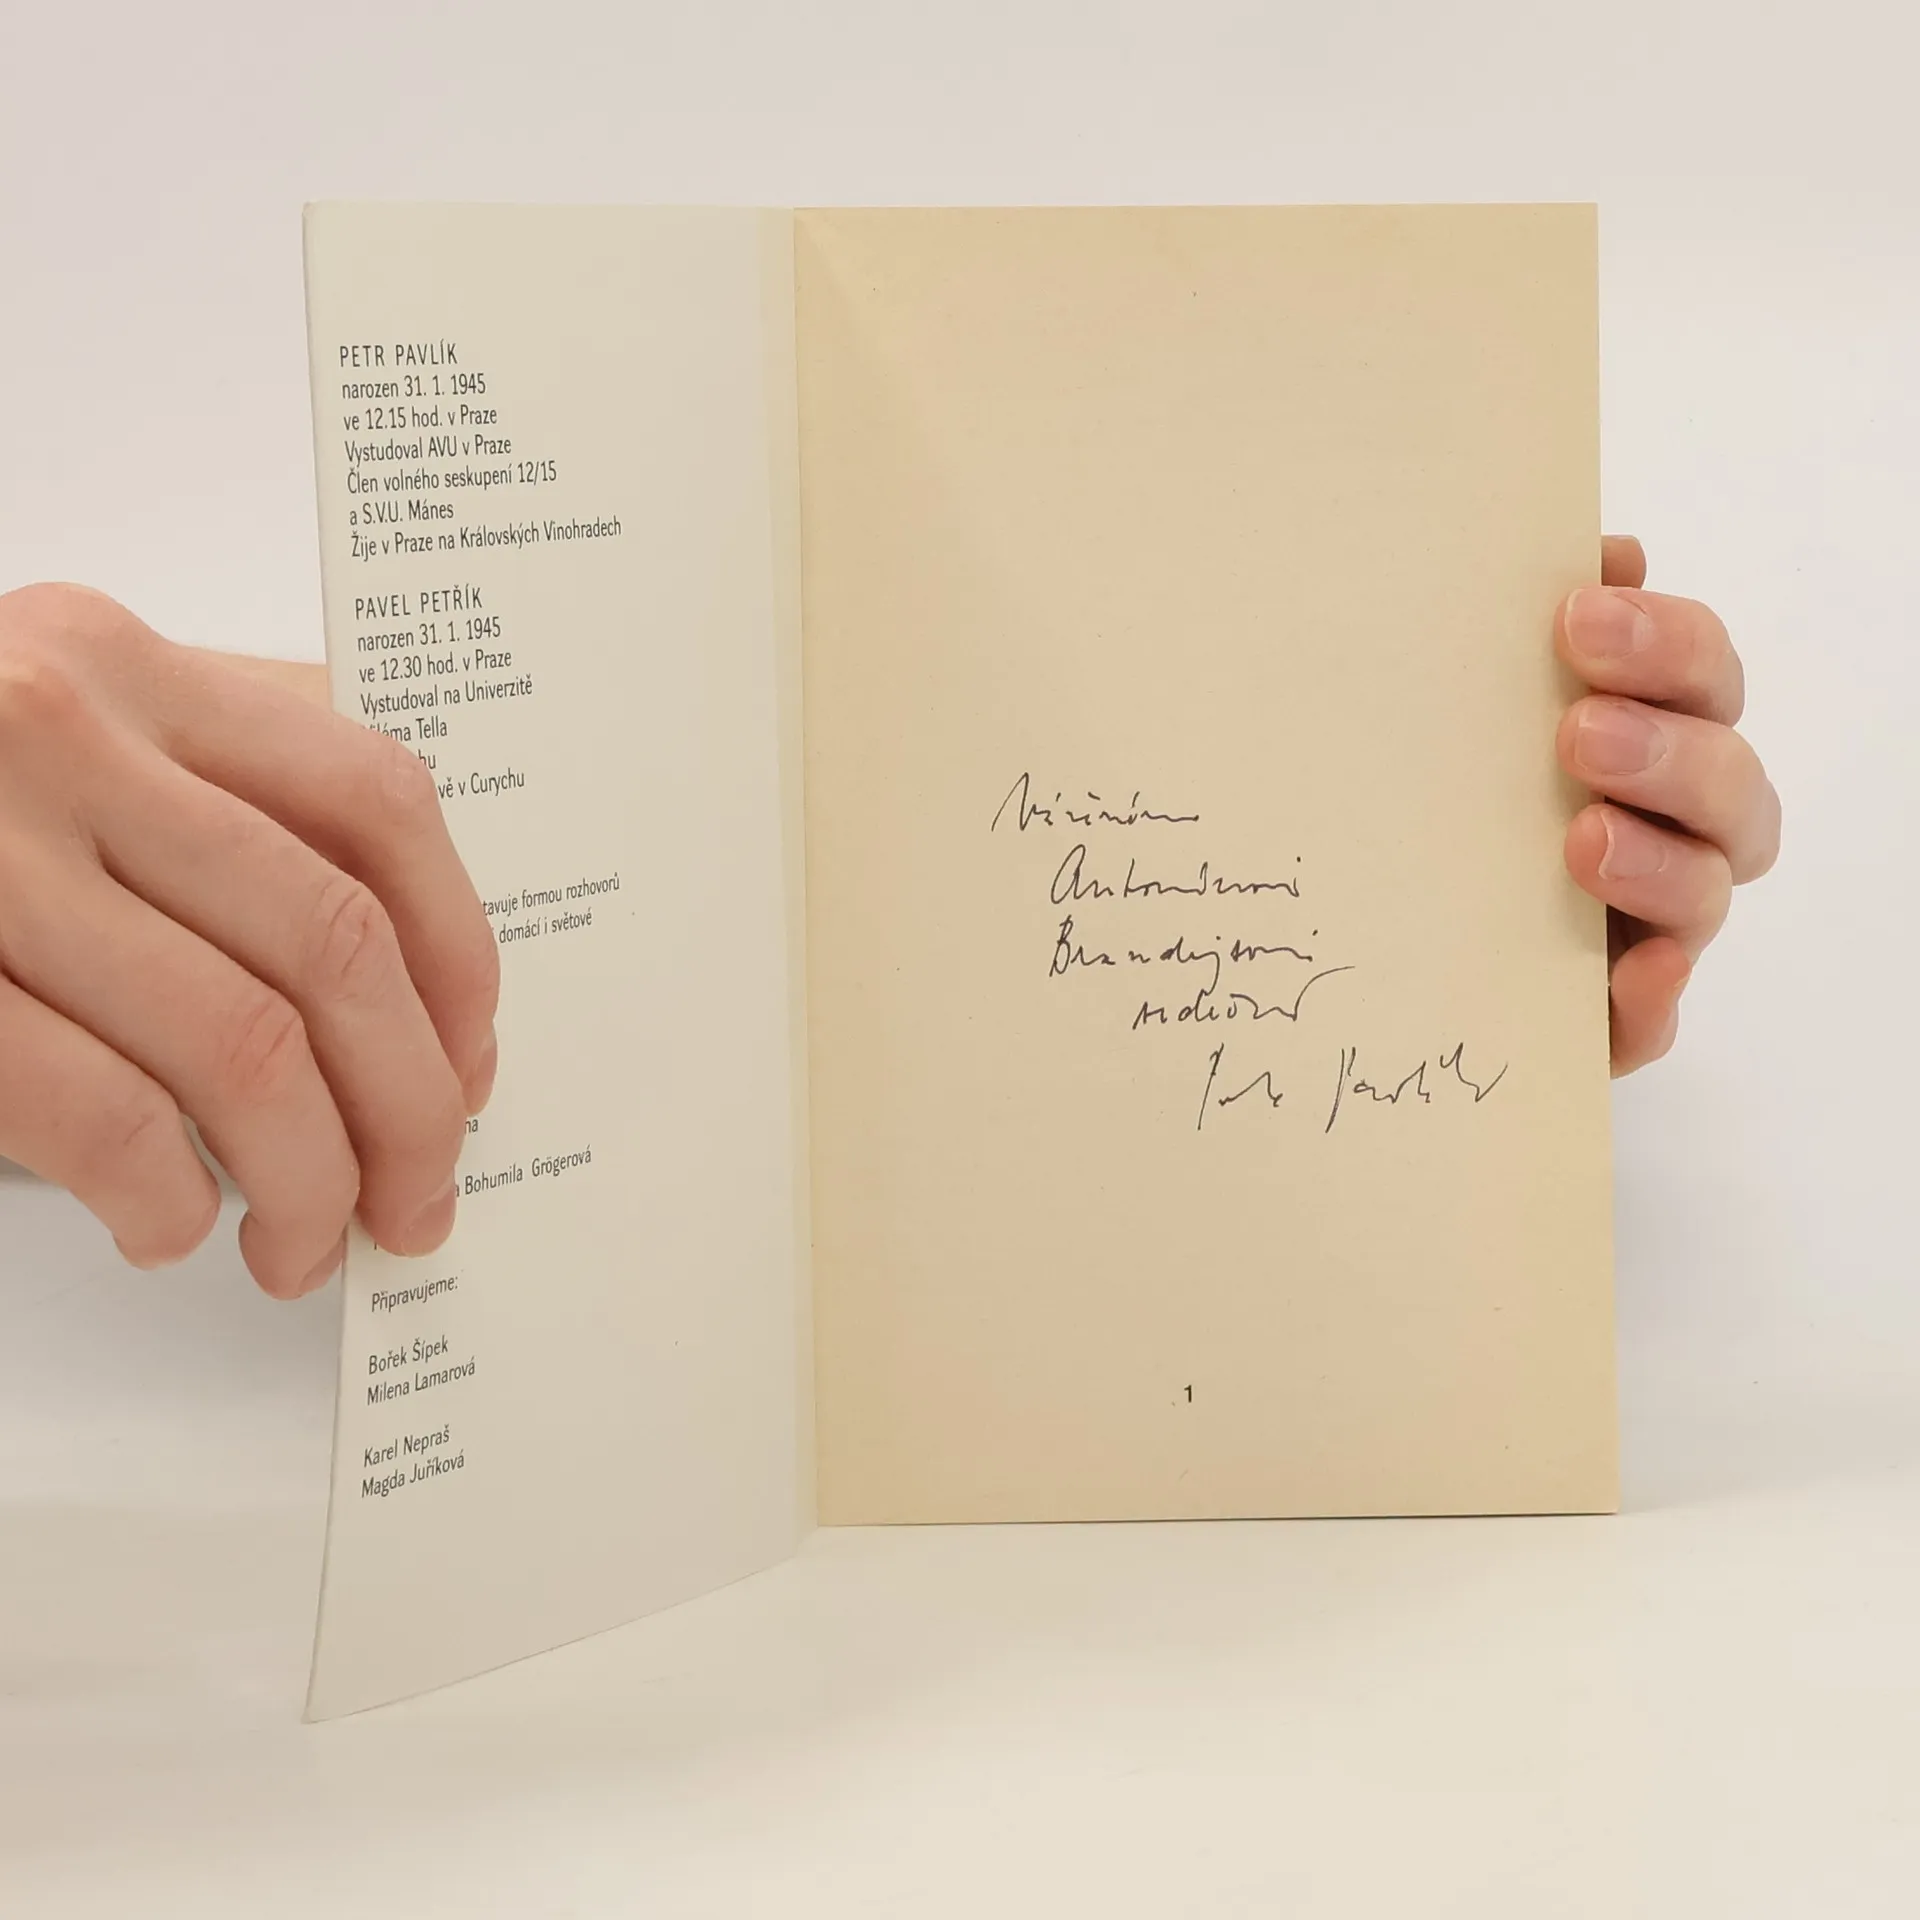 PETR PAVLÍK
narozen 31. 1. 1945
ve 12.15 hod. v Praze
Vystudoval AVU v Praze
Člen volného seskupení 12/15
a S.V.U. Mánes
Žije v Praze na Královských Vinohradech
PAVEL PETŘÍK
narozen 31. 1. 1945
ve 12.30 hod. v Praze
Vystudoval na Univerzitě
Tella
v Curychu
formou rozhovorů
domácí i světové
Bohumila Grögerová
Připravujeme:
Bořek Šípek
Milena Lamarová
Karel Nepraš
Magda Juříková
Váženému
Antonínovi
Brandejsovi
srdečně
Petr Pavlík
1